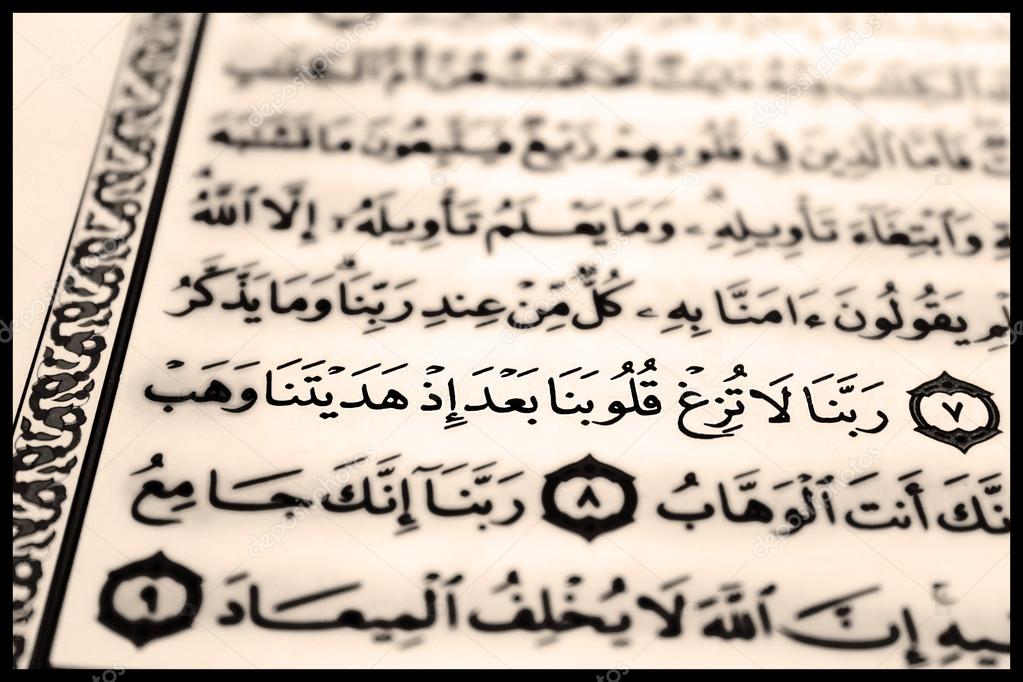 فَأَمَّا ٱلَّذِينَ فِى قُلُوبِهِمْ زَيْغٌ فَيَتَّبِعُونَ مَا تَشَٰبَهَ
وَٱبْتِغَآءَ تَأْوِيلِهِۦ وَمَا يَعْلَمُ تَأْوِيلَهُۥٓ إِلَّا ٱللَّهُ
يَقُولُونَ ءَامَنَّا بِهِۦ كُلٌّ مِّنْ عِندِ رَبِّنَا وَمَا يَذَّكَّرُ
٧ رَبَّنَا لَا تُزِغْ قُلُوبَنَا بَعْدَ إِذْ هَدَيْتَنَا وَهَبْ
أَنتَ ٱلْوَهَّابُ ٨ رَبَّنَآ إِنَّكَ جَامِعُ
إِنَّ ٱللَّهَ لَا يُخْلِفُ ٱلْمِيعَادَ ٩